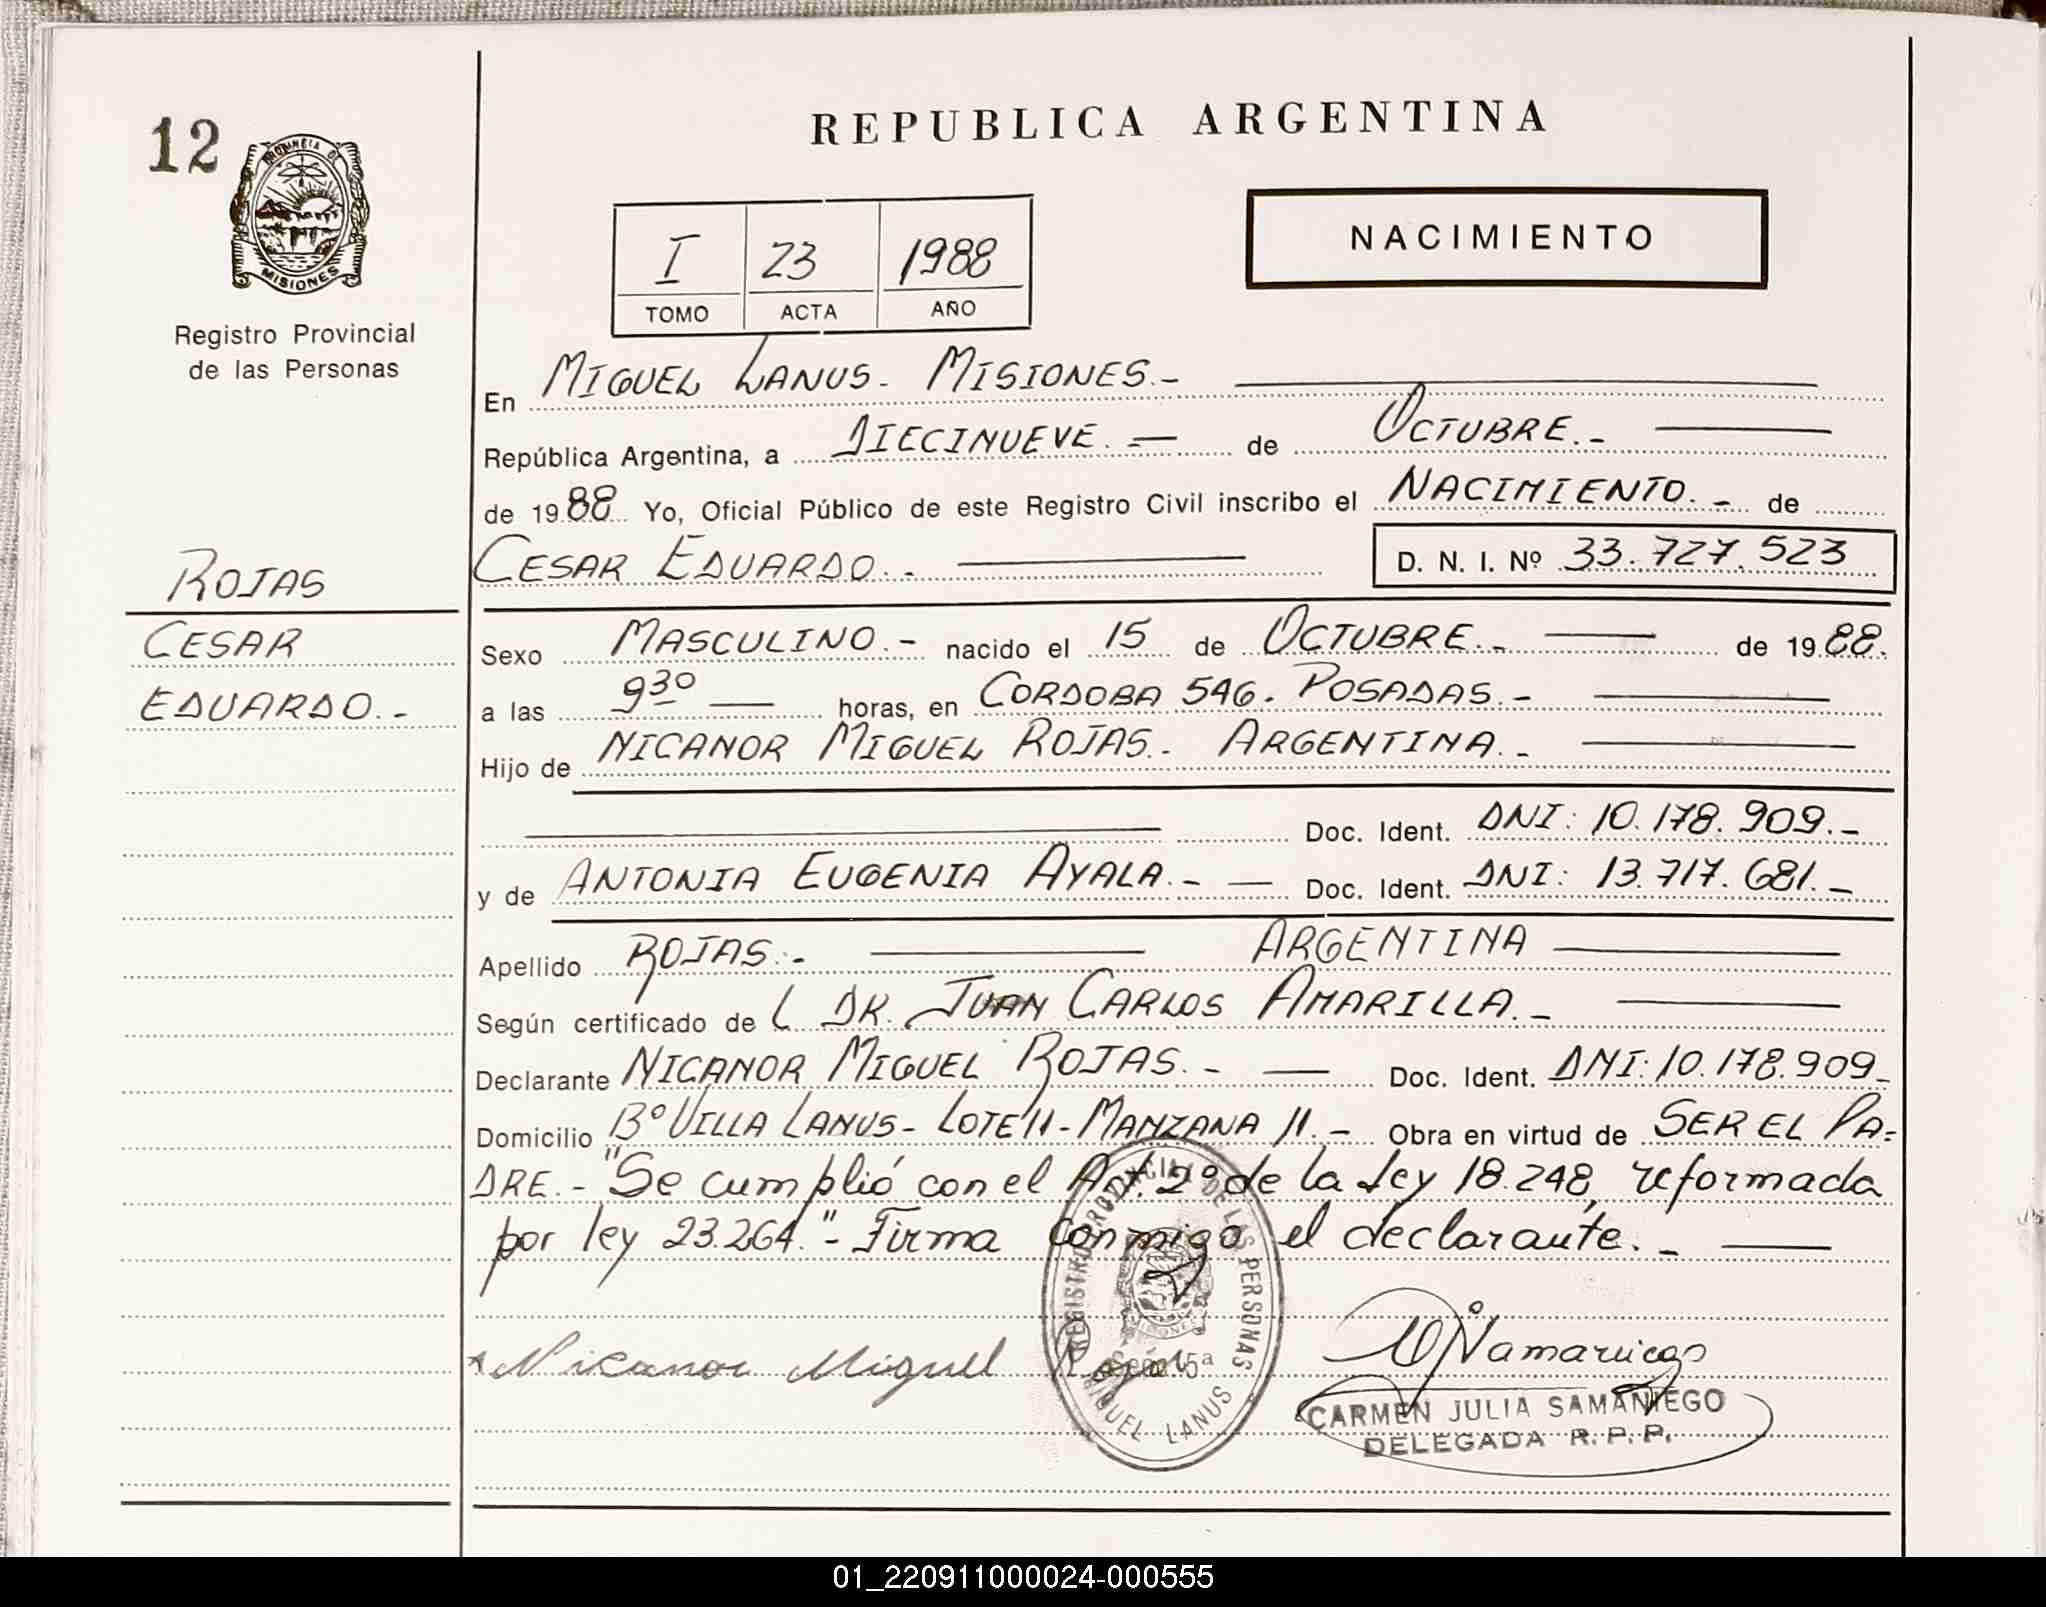 REPUBLICA ARGENTINA
12
PROVINCIA DE
MISIONES
Registro Provincial
de las Personas
NACIMIENTO
I 23 1988
TOMO ACTA AÑO
En MIGUEL LANUS. MISIONES.-
República Argentina, a DIECINUEVE. — de OCTUBRE.-
de 1988 Yo, Oficial Público de este Registro Civil inscribo el NACIMIENTO. - de
CESAR EDUARDO.- D. N. I. Nº 33.727.523
ROJAS
CESAR
EDUARDO.-
Sexo MASCULINO.- nacido el 15 de OCTUBRE.- de 1988.
a las 9³⁰ horas, en CORDOBA 546. POSADAS.-
Hijo de NICANOR MIGUEL ROJAS. ARGENTINA.-
Doc. Ident. DNI: 10.178.909.-
y de ANTONIA EUGENIA AYALA.- — Doc. Ident. DNI: 13.717.681.-
Apellido ROJAS.- ARGENTINA
Según certificado de L DR. JUAN CARLOS AMARILLA.-
Declarante NICANOR MIGUEL ROJAS.- — Doc. Ident. DNI: 10.178.909-
Domicilio Bº VILLA LANUS- LOTE 11- MANZANA 11.- Obra en virtud de SER EL PA=
DRE.- "Se cumplió con el Art. 2º de la Ley 18.248, reformada
por ley 23.264."- Firma conmigo el declarante.-
Nicanor Miguel Rojas
REGISTRO PROVINCIAL DE LAS PERSONAS
MISIONES
MIGUEL LANUS
CARMEN JULIA SAMANIEGO
DELEGADA R. P. P.
01_220911000024-000555